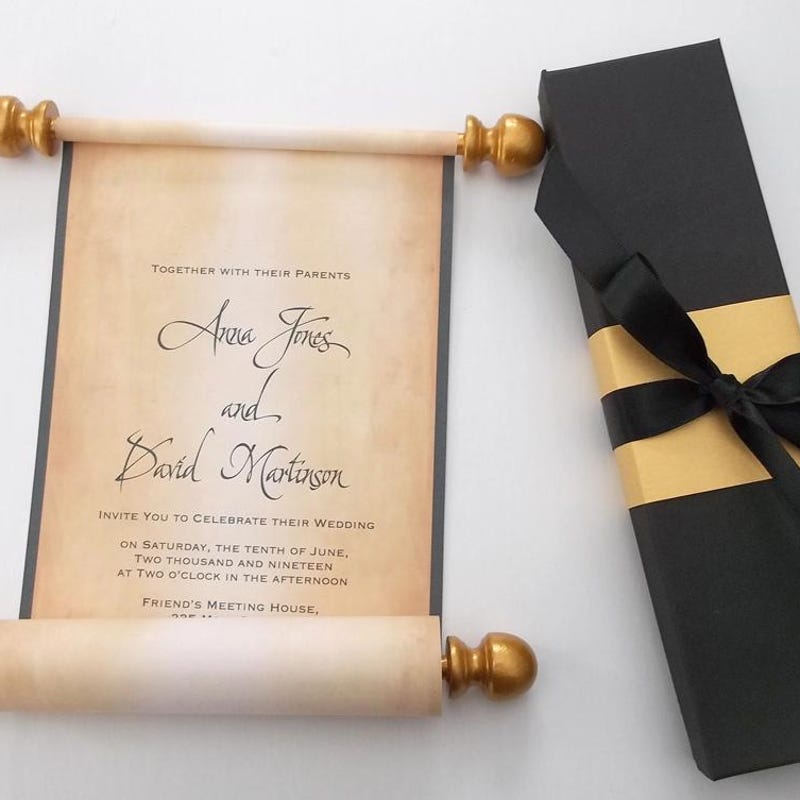 Together with their Parents
Anna Jones
and
David Martinson
Invite You to Celebrate their Wedding
on Saturday, the tenth of June,
Two thousand and nineteen
at Two o'clock in the afternoon
Friend's Meeting House,